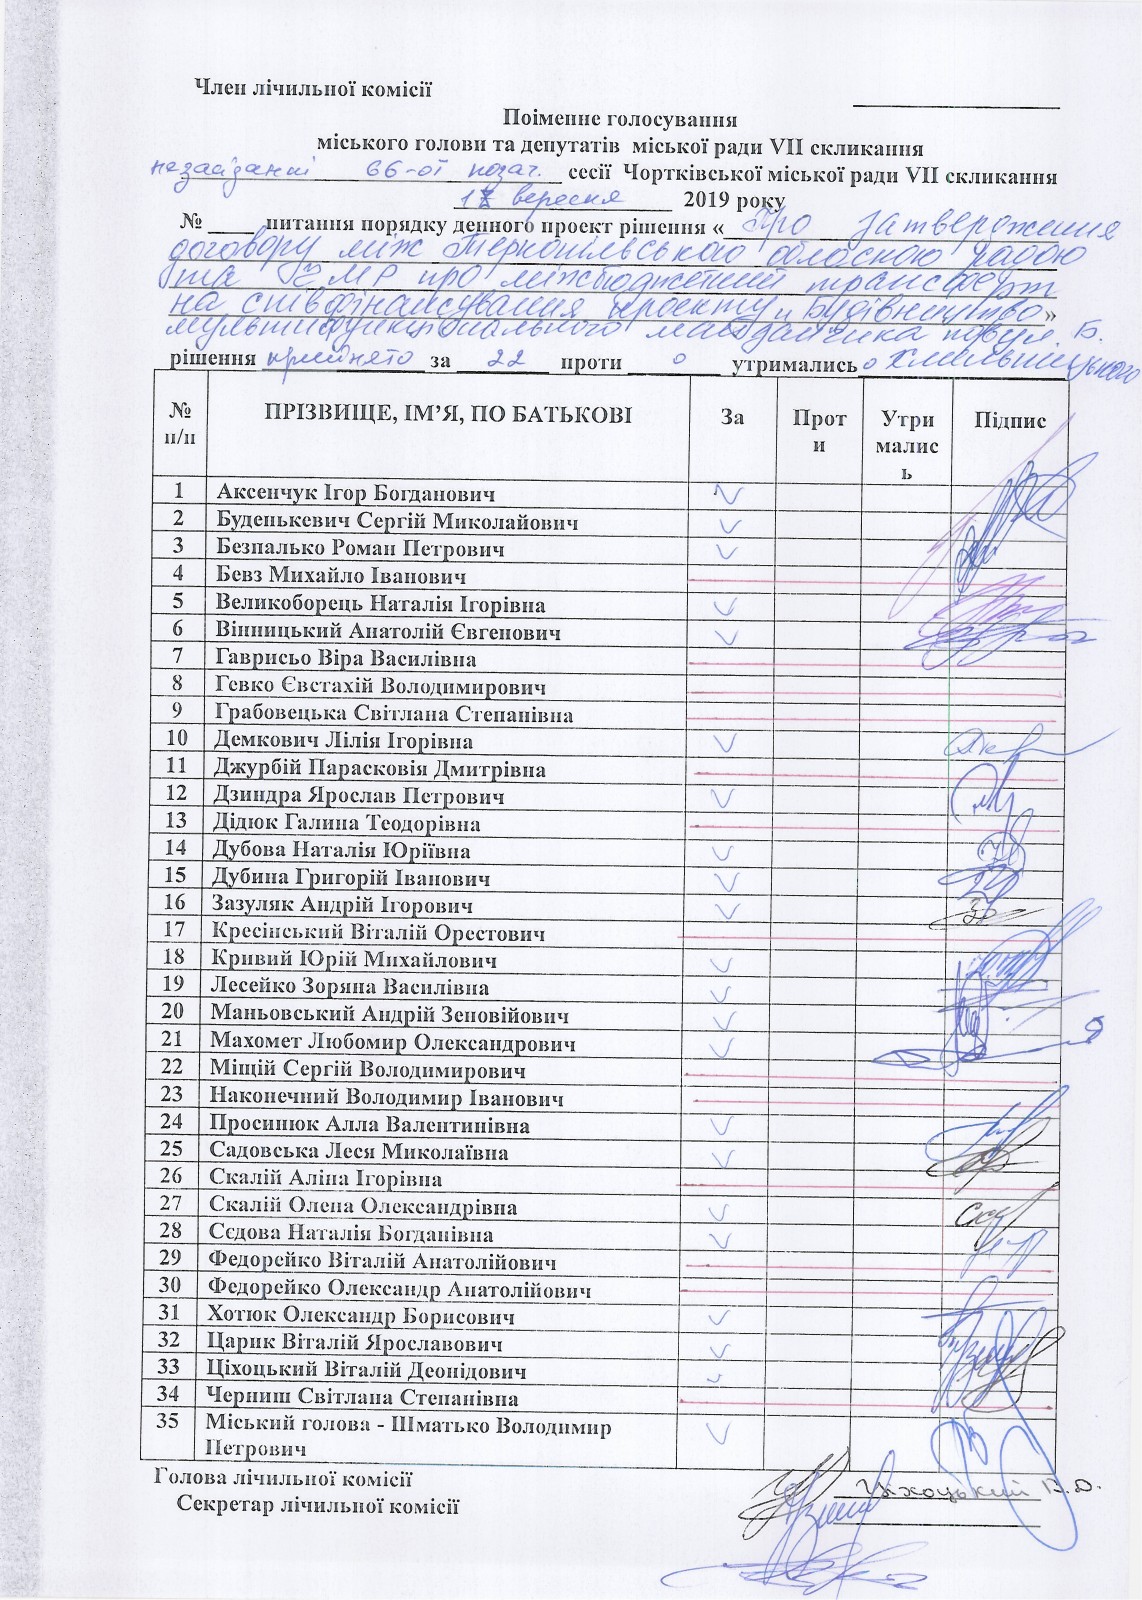 Член лічильної комісії
Поіменне голосування
міського голови та депутатів міської ради VII скликання
на засіданні 66-ої позач. сесії Чортківської міської ради VII скликання
17 вересня 2019 року
№ ____ питання порядку денного проект рішення «Про затвердження
договору між Тернопільською обласною радою
та ЧМР про міжбюджетний трансферт
на співфінансування проекту „Будівництво»
мультифункціонального майданчика по вул. Б.
Хмельницького
рішення прийнято за 22 проти 0 утримались 0
№ п/п ПРІЗВИЩЕ, ІМ’Я, ПО БАТЬКОВІ За Проти Утримались Підпис
1 Аксенчук Ігор Богданович V
2 Буденькевич Сергій Миколайович V
3 Безпалько Роман Петрович V
4 Бевз Михайло Іванович
5 Великоборець Наталія Ігорівна V
6 Вінницький Анатолій Євгенович V
7 Гаврисьо Віра Василівна
8 Гевко Євстахій Володимирович
9 Грабовецька Світлана Степанівна
10 Демкович Лілія Ігорівна V
11 Джурбій Парасковія Дмитрівна
12 Дзиндра Ярослав Петрович V
13 Дідюк Галина Теодорівна
14 Дубова Наталія Юріївна V
15 Дубина Григорій Іванович V
16 Зазуляк Андрій Ігорович V
17 Кресінський Віталій Орестович
18 Кривий Юрій Михайлович V
19 Лесейко Зоряна Василівна V
20 Маньовський Андрій Зеновійович V
21 Махомет Любомир Олександрович V
22 Міщій Сергій Володимирович
23 Наконечний Володимир Іванович
24 Просинюк Алла Валентинівна V
25 Садовська Леся Миколаївна V
26 Скалій Аліна Ігорівна
27 Скалій Олена Олександрівна V
28 Сєдова Наталія Богданівна V
29 Федорейко Віталій Анатолійович
30 Федорейко Олександр Анатолійович
31 Хотюк Олександр Борисович V
32 Царик Віталій Ярославович V
33 Ціхоцький Віталій Деонідович V
34 Черниш Світлана Степанівна
35 Міський голова - Шматько Володимир V
Петрович
Голова лічильної комісії Ціхоцький В.Д.
Секретар лічильної комісії